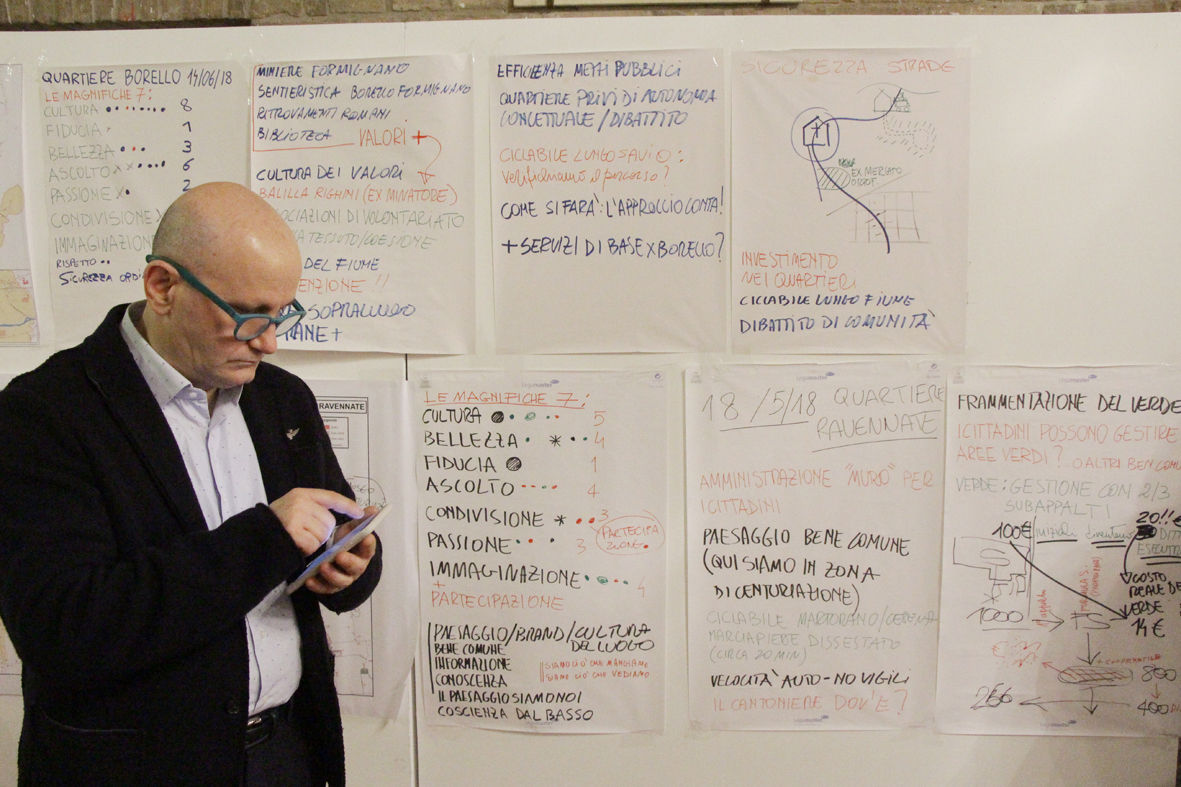 QUARTIERE BORELLO 14/06/18
LE MAGNIFICHE 7:
CULTURA 8
FIDUCIA 1
BELLEZZA 3
ASCOLTO 6
PASSIONE 2
CONDIVISIONE
IMMAGINAZION
RISPETTO
SICUREZZA
MINIERE FORMIGNANO
SENTIERISTICA BORELLO FORMIGNANO
RITROVAMENTI ROMANI
BIBLIOTECA
VALORI +
CULTURA DEI VALORI
BALILLA RIGHINI (EX MINATORE)
OCIAZIONI DI VOLONTARIATO
TESSUTO/COESIONE
DEL FIUME
ENZIONE !!
SOPRALUOGO
TANE +
EFFICIENZA MEZZI PUBBLICI
QUARTIERE PRIVI DI AUTONOMIA
CONCETTUALE / DIBATTITO
CICLABILE LUNGO SAVIO:
verifichiamo il percorso?
COME SI FARÀ: L'APPROCCIO CONTA!
+ SERVIZI DI BASE X BORELLO?
SICUREZZA STRADE
EX MERCATO
INVESTIMENTO
NEI QUARTIERI
CICLABILE LUNGO FIUME
DIBATTITO DI COMUNITÀ
RAVENNATE
LE MAGNIFICHE 7:
CULTURA 5
BELLEZZA 4
FIDUCIA 1
ASCOLTO 4
CONDIVISIONE 3
PARTECIPA
ZIONE
PASSIONE 3
IMMAGINAZIONE 4
+
PARTECIPAZIONE
PAESAGGIO/BRAND/CULTURA
DEL LUOGO
BENE COMUNE
INFORMAZIONE
CONOSCENZA
SIAMO CIÒ CHE MANGIAMO
SIAMO CIÒ CHE VEDIAMO
IL PAESAGGIO SIAMO NOI
COSCIENZA DAL BASSO
18/5/18 QUARTIERE
RAVENNATE
AMMINISTRAZIONE "MURO" PER
I CITTADINI
PAESAGGIO BENE COMUNE
(QUI SIAMO IN ZONA
DI CENTURIAZIONE)
CICLABILE MARTORANO/CESENA
MARCIAPIEDE DISSESTATO
(CIRCA 20 MIN)
VELOCITÀ AUTO - NO VIGILI
IL CANTONIERE DOV'È?
FRAMMENTAZIONE DEL VERDE
I CITTADINI POSSONO GESTIRE
AREE VERDI? ... O ALTRI BEN COMU
VERDE: GESTIONE CON 2/3
SUBAPPALTI
100€
20!!€
DIT
ESECUT
COSTO
REALE DEL
VERDE
14€
1000
FS
800
266
400